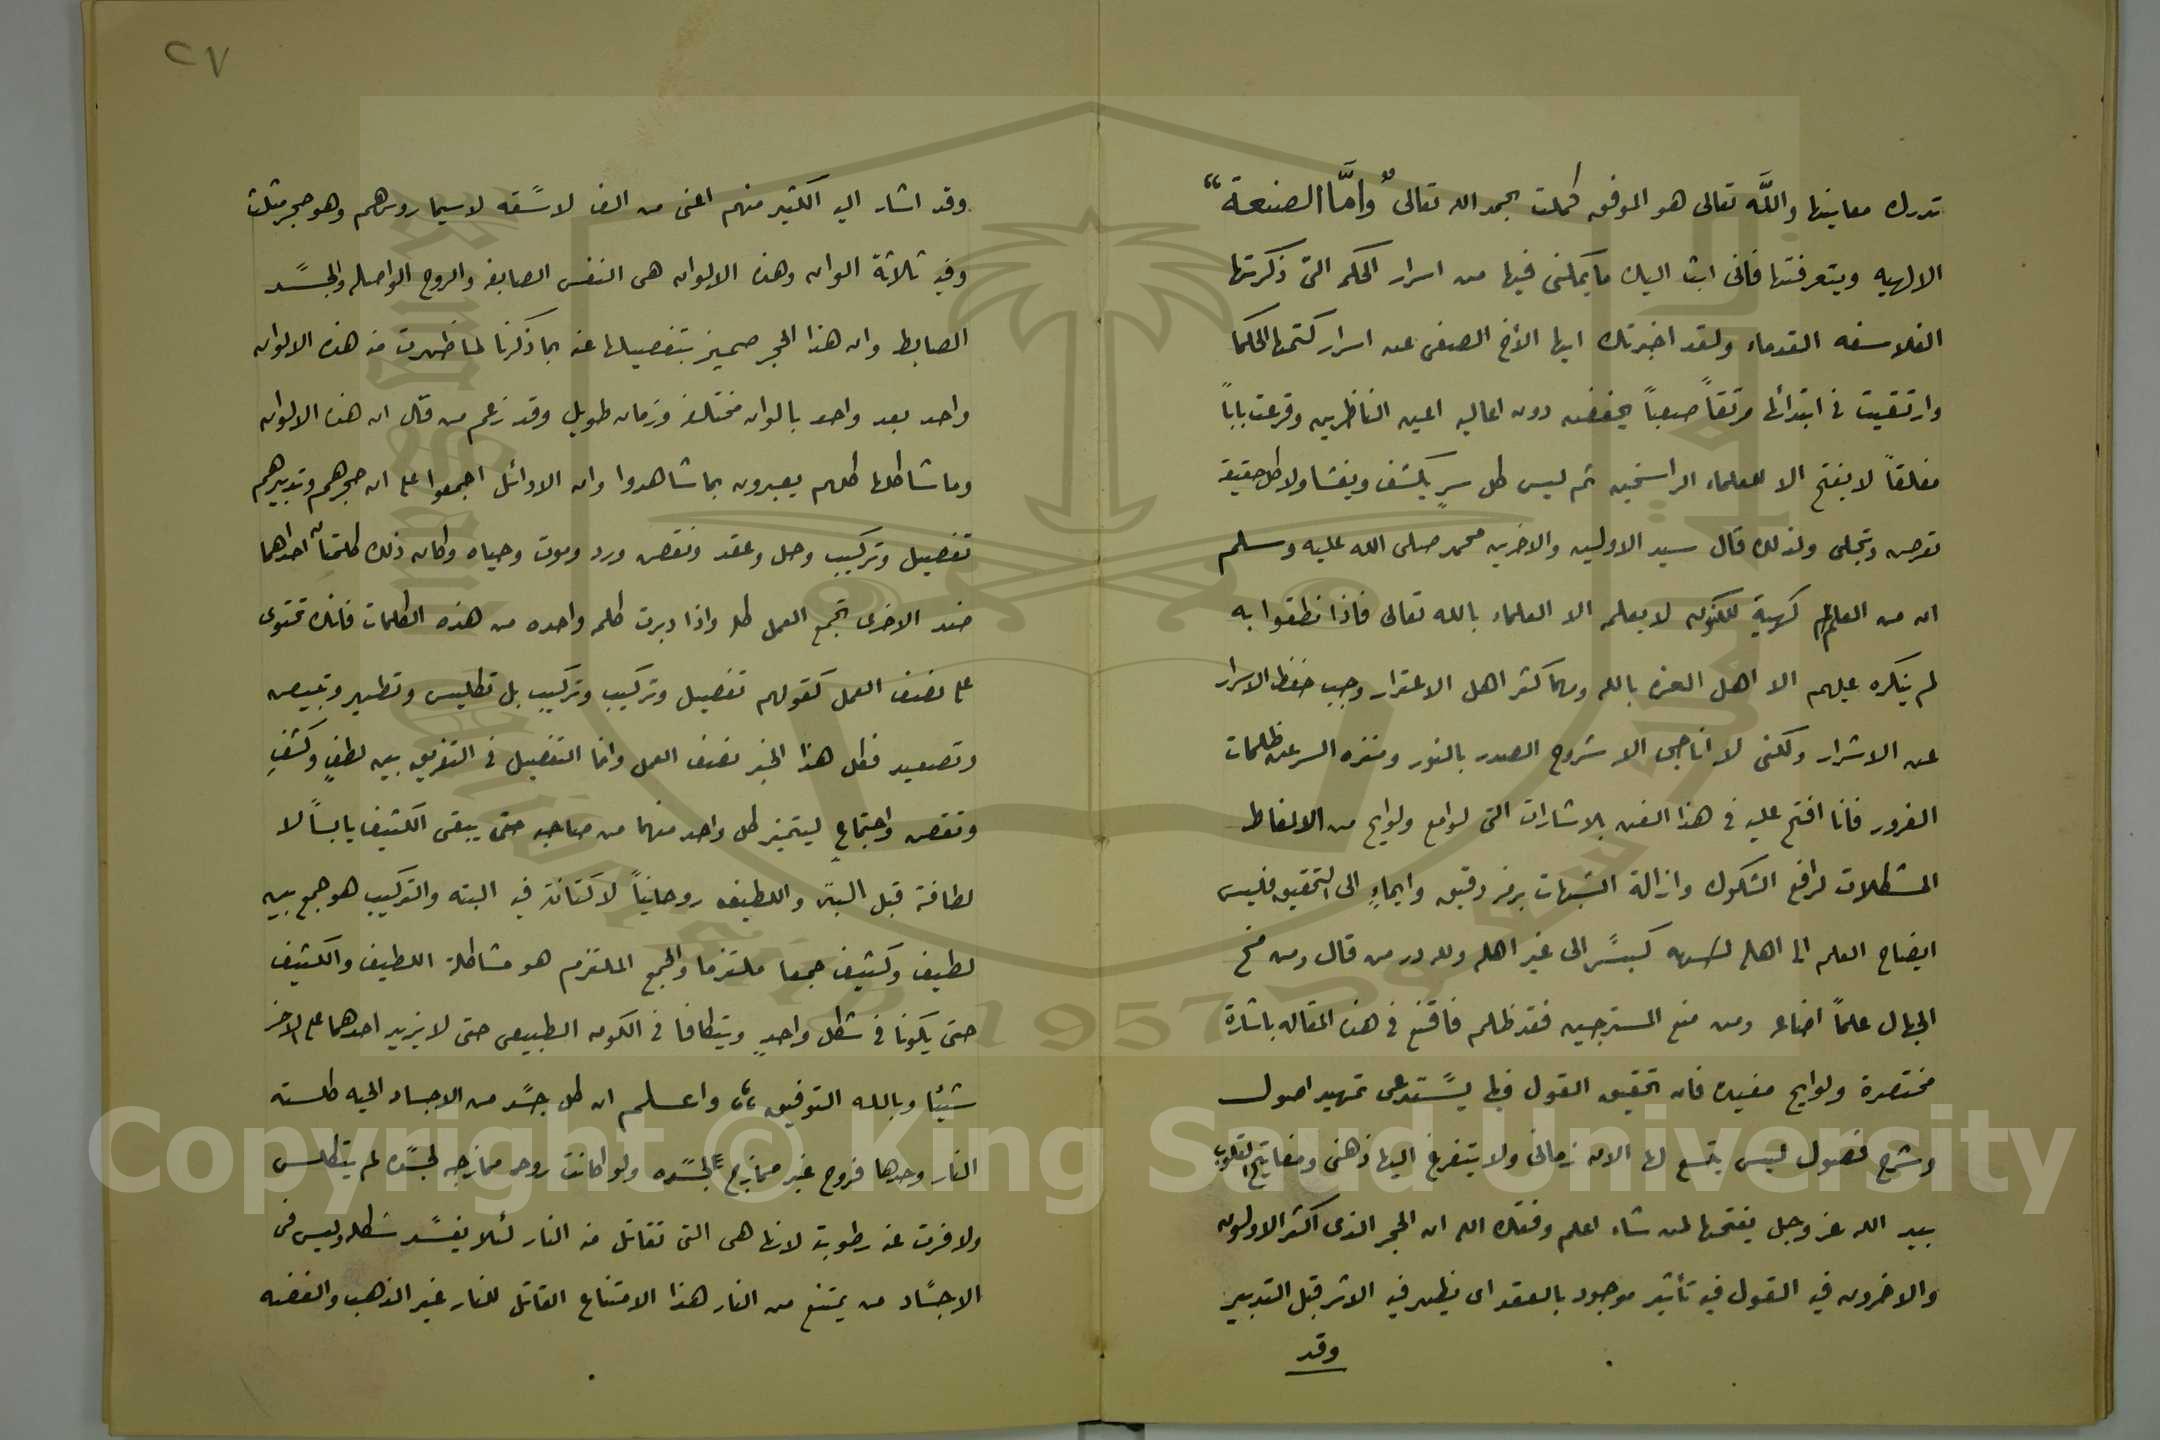 تدرك معاينها والله تعالى هو الموفق كملت بحمد الله تعالى واما الصنعة
الالهيه ويتعرفتها فانى ابث اليك ما يمكنى فيها من اسرار الحكم التى ذكرتها
الفلاسفه القدماء ولقد اخبرتك ايها الأخ الصفى عن اسرار كتمها الحكما
وارتقيت فى ابتدائها مرتقاً صعباً دون اعاليه اعين الناظرين وقرعت باباً
مغلقاً لا يفتح الا للعلماء الراسخين ثم ليس كل سرٍ يكشف ويفشا ولا كل حقيقة
تعرض وتجلى ولذلك قال سيد الاولين والاخرين محمد صلى الله عليه وسلم
ان من العلم كهيئة المكنون لا يعلمه الا العلماء بالله تعالى فاذا نطقوا به
لم ينكره عليهم الا اهل الغره بالله ومهما كثر اهل الاغترار وجب حفظ الاسرار
عن الاشرار ولكنى لا اناجى الا مشروح الصدر بالنور ومنزه السر عن ظلمات
الغرور فانا افتح عليه فى هذا الفن بالاشارات التى لوامع ولوايح من الالفاظ
المشكلات لرافع الشكوك وازالة الشبهات برمز دقيق وايماءٍ الى التحقيق فليس
ايضاح العلم الى اهله الى غير اهله ولله در من قال ومن منح
الجهال علماً اضاعه ومن منع المستوجبين فقد ظلم فاقنع فى هذه المقاله باشارة
مختصرة ولوايح مفيده فان تحقيق القول فيها يستدعى تمهيد اصول
وشرح فصول ليس يتسع لها الان زمانى ولا يتفرغ اليها ذهنى ومفاتيح القلوب
بيد الله عز وجل يفتحها لمن شاء اعلم وفقك الله ان الحجر الذى اكثر الاولون
والاخرون فيه القول فيه تأثير موجود بالعقد اى يظهر فيه الاثر قبل التدبير
وقد
٢٧
وقد اشار اليه الكثير منهم اعنى من الفلاسفه لاسيما روسهم وهو حجر مثلث
وفيه ثلاثة الوان وهذه الالوان هى النفس الصابغه والروح الواصله والجسد
الضابط وان هذا الحجر بتفصيلها عنه بما ذكرنا لما ظهرت منه هذه الالوان
واحد بعد واحد بالوان مختلفه وزمان طويل وقد زعم من قال ان هذه الالوان
وما شاكلها كلهم يعبرون بما شاهدوا وان الاوائل اجمعوا على ان حجرهم وتدبيرهم
تفصيل وتركيب وحل وعقد ونقص ورد وموت وحياه وكان ذلك كلمتان احداهما
ضد الاخرى تجمع العمل كله واذا دبرت كلمه واحده من هذه الكلمات فانها تحتوى
على نصف العمل كقولهم تفصيل وتركيب وتركيب بل تكليس وتطهير وتبييض
وتصعيد فكل هذا الخبر نصف العمل وانما التفصيل فى التفريق بين لطفٍ وكشفٍ
ونقص واجتماعٍ ليتميز كل واحد منهما من صاحبه حتى يبقى الكثيف يابساً لا
لطافة قبل البته واللطيف روحانياً لا كثافة فيه البته والتركيب هو جمع بين
لطيف وكثيف جمعا ملتزما والجمع الملتزم هو مشاكلة اللطيف والكثيف
حتى يكونا فى شكل واحدٍ ويتكافا فى الكون الطبيعى حتى لا يزيد احدهما على الاخر
شيئا وبالله التوفيق واعلم ان كل جسد من الاجساد الحيه كلسته
النار وحدها فروح غير ممازج لجسده ولو كانت روحه ممازجه لجسده لم يتكلس
ولا فرت عنه رطوبته لانها هى التى تقاتل منه النار لئلا يفسد شكله وليس فى
الاجساد من يمتنع من النار هذا الامتناع القاتل للنار غير الذهب والفضه
Copyright © King Saud University
1957